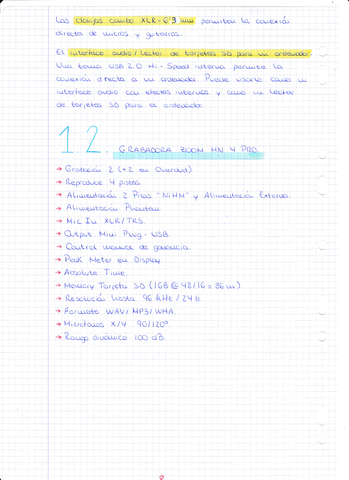 Las clavijas combo XLR-6'3 mm permiten la conexión
directa de micros y guitarras.
El interface audio/lector de tarjetas SD para un ordenador.
Una toma USB 2.0 Hi-Speed interna permite la
conexión directa a un ordenador. Puede usarlo como un
interface audio con efectos internos y como un lector
de tarjetas SD para el ordenador.
1.2. GRABADORA ZOOM HN 4 PRO.
→ Grabación 2 (+2 en Overdud)
→ Reproduce 4 pistas
→ Alimentación 2 Pilas "NiHM" y Alimentación Externa.
→ Alimentación Phantom
→ Mic In XLR/TRS.
→ Output Mini Plug-USB.
→ Control manual de ganancia.
→ Peak Meter en Display
→ Absolute Time.
→ Memory Tarjeta SD (1GB @ 48/16 = 86 m)
→ Resolución hasta 96 kHz / 24 b.
→ Formato WAV/MP3/WMA.
→ Micrófonos X/Y 90/120º.
→ Rango dinámico 100 dB.
8